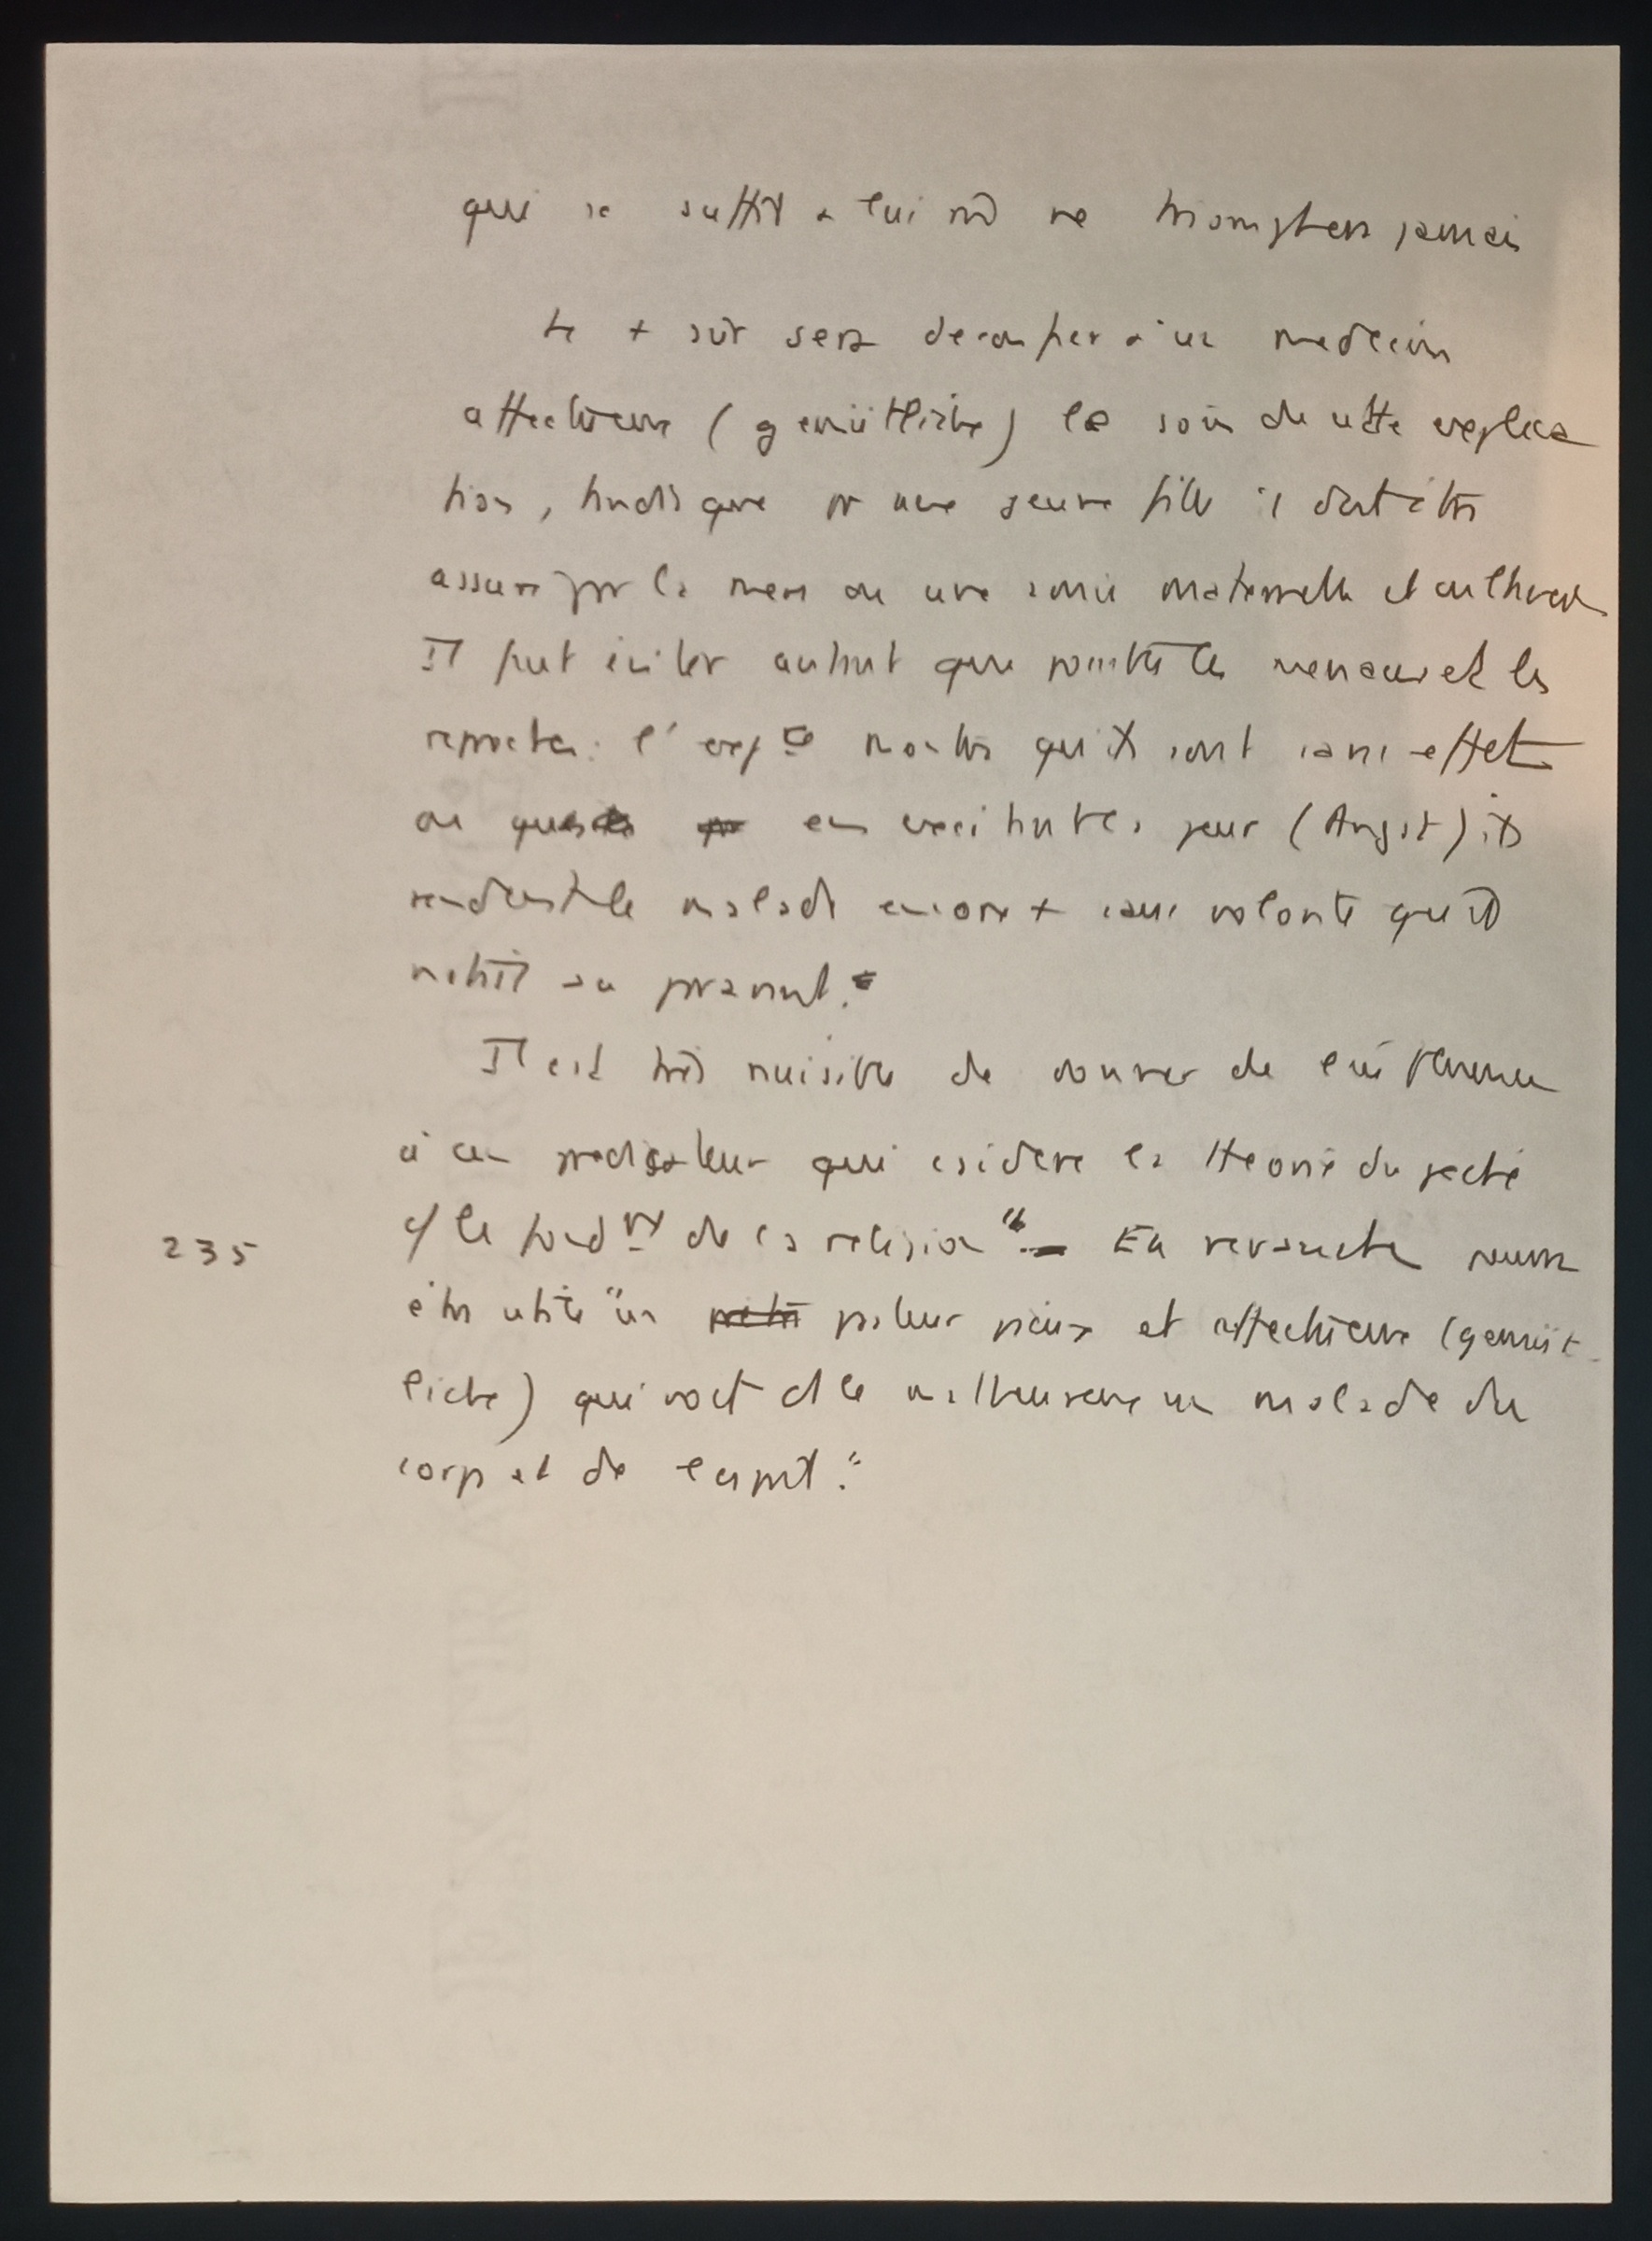 qui se suffit a lui m̂ ne triomphera jamais
Le + sûr sera de confier à un medecin
affectueux (gemütliche) le soin de cette explica
tion, tandis que pr une jeune fille il doit être
assuré par la mere ou une amie maternelle et
Il faut eviter autant que possible les menaces et les
reproches : l' expce montre qu'ils sont sans effet
ou que en excitant la peur (Angst) ils
rendent le malade encore + sans volonté qu'il
n'etait auparavant."
Il est très nuisible de donner de
à un predicateur qui considere la theorie du peché
c/ le fondnt de la religion". En revanche pourra
être utile "un pasteur pieux et affectueux (gemüt-
liche) qui voit ds le malheureux un malade du
235
corps et de l'esprit."